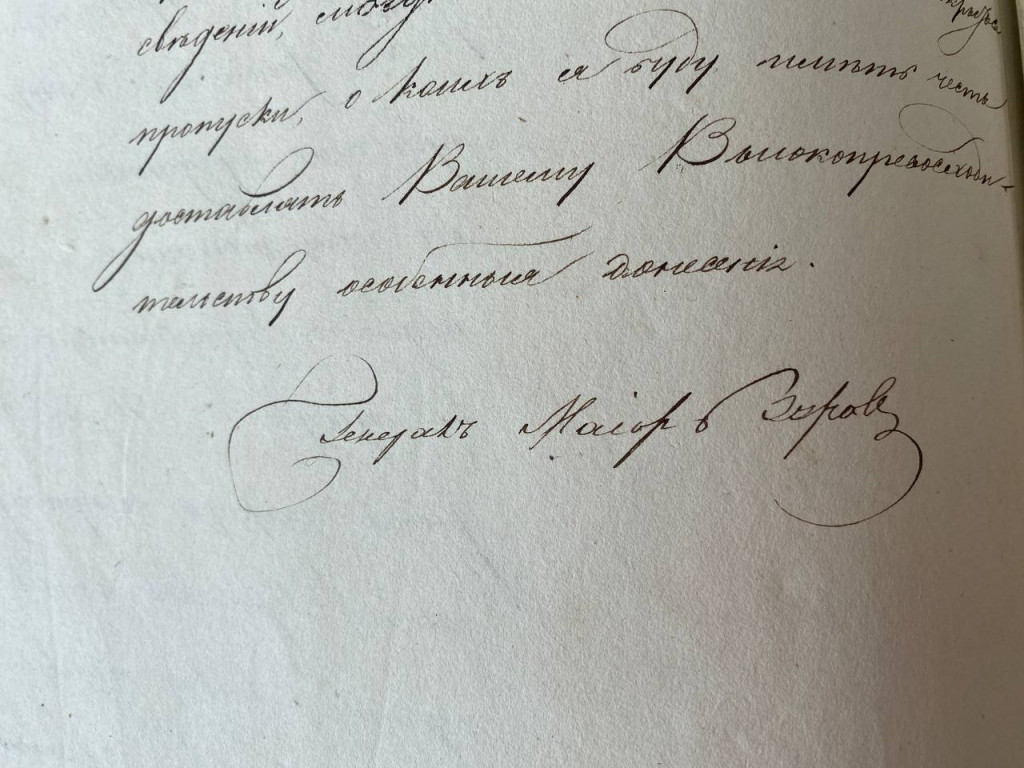 свѣденій, могу
пропуски, о коихъ я буду имѣть честь
доставлять Вашему Высокопревосходи-
тельству особенныя донесенія.
Генералъ Маіоръ